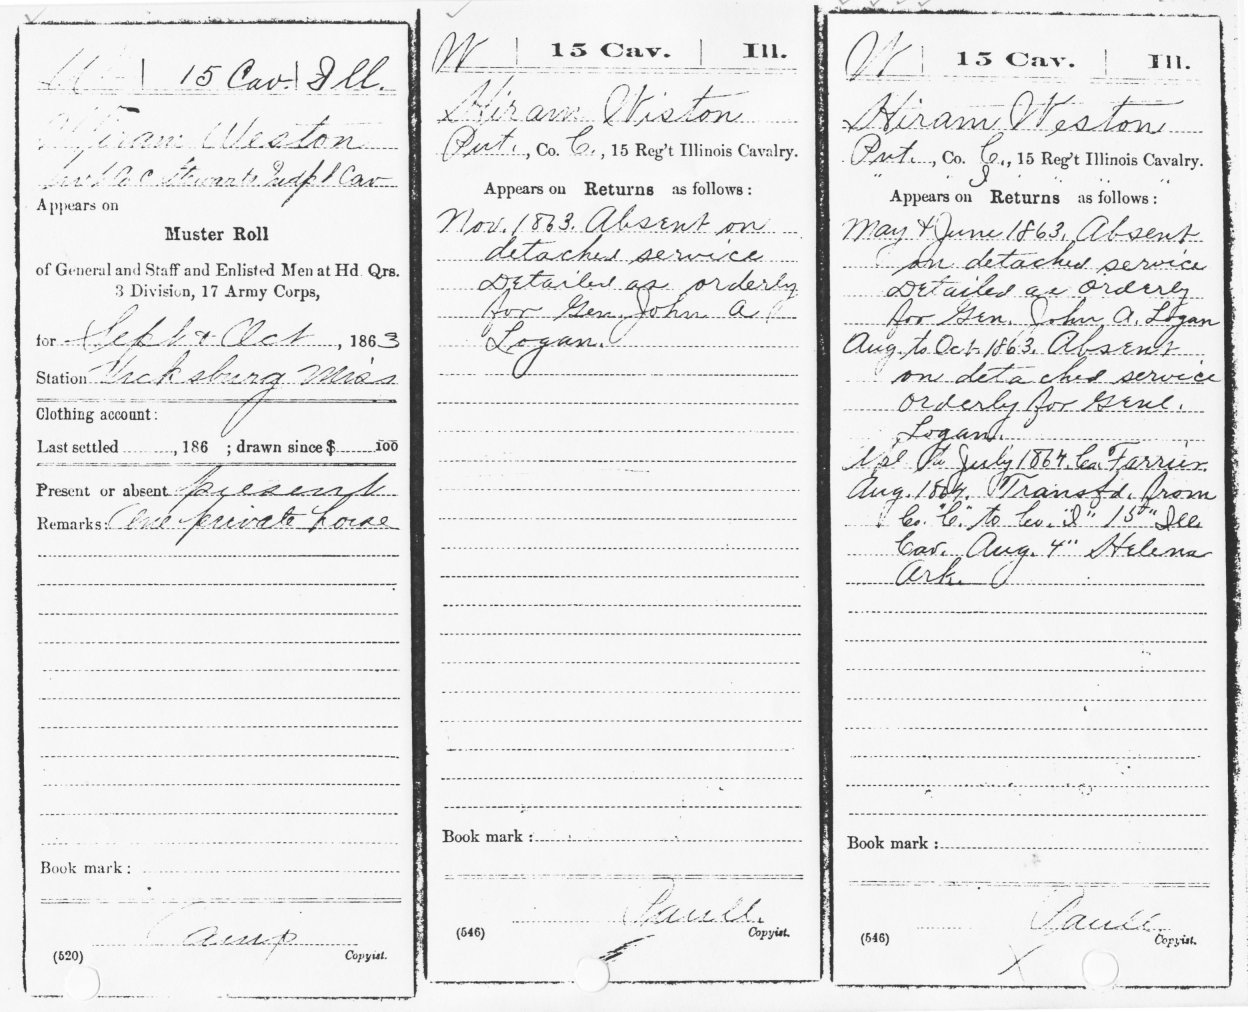 W | 15 Cav. | Ill.
Hiram Weston
Co. C Stewarts Indpt Cav
Appears on
Muster Roll
of General and Staff and Enlisted Men at Hd. Qrs.
3 Division, 17 Army Corps,
for Sept & Oct, 1863
Station Vicksburg Miss
Clothing account:
Last settled , 186 ; drawn since $ 100
Present or absent present
Remarks: One private horse
Book mark:
Camp
(520) Copyist.
W | 15 Cav. | Ill.
Hiram Wiston
Pvt., Co. C., 15 Reg't Illinois Cavalry.
Appears on Returns as follows:
Nov. 1863. Absent on
detached service
Detailed as orderly
for Gen. John A
Logan.
Book mark:
Paull.
(546) Copyist.
W | 15 Cav. | Ill.
Hiram Weston
Pvt., Co. C., 15 Reg't Illinois Cavalry.
" I " " "
Appears on Returns as follows:
May & June 1863. Absent
on detached service
Detailed as orderly
for Gen. John A. Logan
Aug. to Oct. 1863. Absent
on detached service
orderly for Genl.
Logan.
July 1864. Co. Farrier.
Aug. 1864. Transfd. from
Co. "C" to Co. "I" 15" Ill
Cav. Aug. 4" Helena
Ark.
Book mark:
Paull.
(546) Copyist.